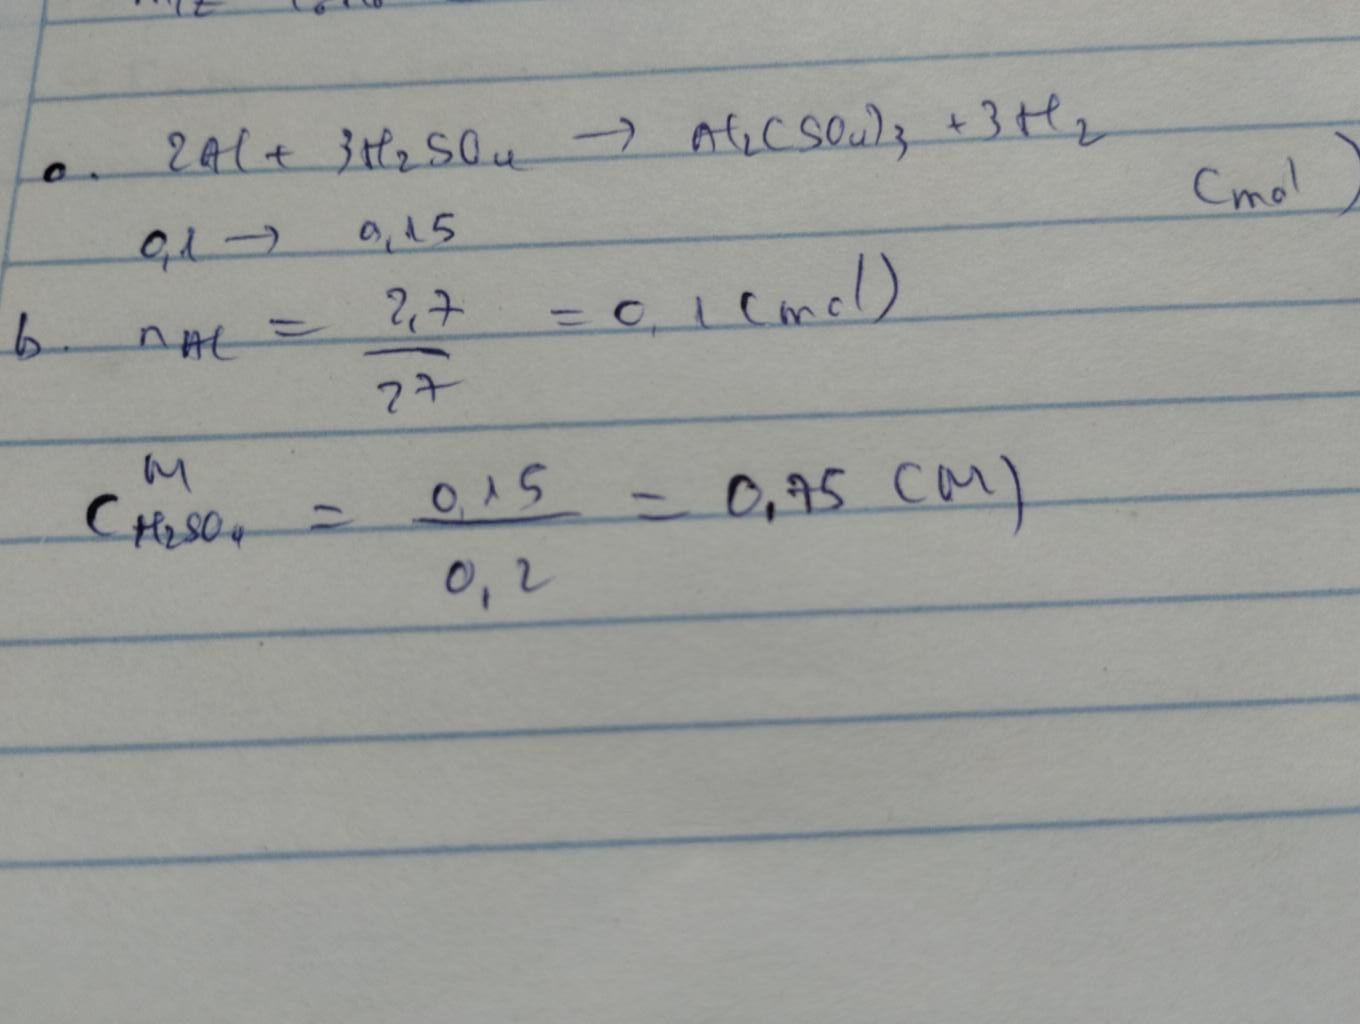 a. 2Al + 3H₂SO₄ → Al₂(SO₄)₃ + 3H₂
(mol)
0,1 → 0,15
b. nAl = 2,7 / 27 = 0,1 (mol)
CM H₂SO₄ = 0,15 / 0,2 = 0,75 (M)